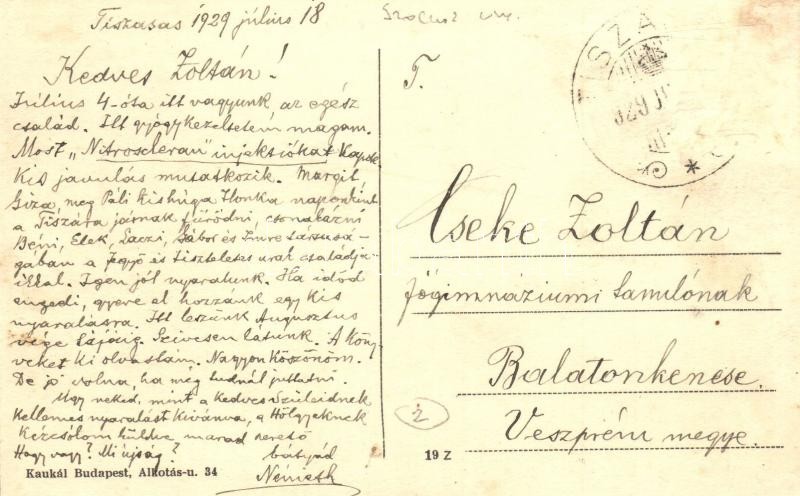 Tiszasas 1929 július 18
Kedves Zoltán!
Július 4-óta itt vagyunk az egész
család. Itt gyógykezeltetem magam.
Most "Nitroscleran" injekciókat kapok
Kis javulás mutatkozik. Margit,
Giza, meg Páli kishúga Ilonka naponként
a Tiszára járnak fürödni, csonakázni
Béni, Elek, Laczi, Gábor és Imre társasá-
gában a jegyző és tiszteletes urak családja-
ikkal. Igen jól nyaralunk. Ha időd
engedi, gyere el hozzánk egy kis
nyaralásra. Itt leszünk Augusztus
vége. Szivesen látunk. A Köny-
veket ki olvastam. Nagyon köszönöm.
De jó volna, ha még tudnál juttatni.
Ugy neked, mint a kedves szüleidnek
kellemes nyaralást kivánva, a Hölgyeknek
kézcsókom küldve, marad szerető
Hogy vagy? Mi újság? bátyád
Németh
Kaukál Budapest, Alkotás-u. 34
T.
Cseke Zoltán
főgimnáziumi tanulónak
Balatonkenese.
Veszprém megye.
2
19 Z
TISZA
929